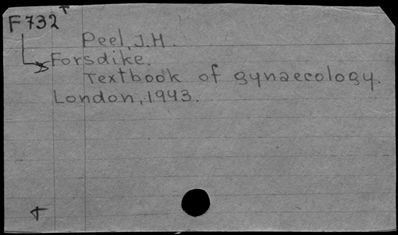 F732
Peel, J.H.
Forsdike.
Textbook of gynaecology.
London, 1943.